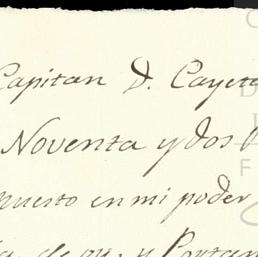 Capitan D. Cayeta
Noventa y dos
puesto en mi poder
de